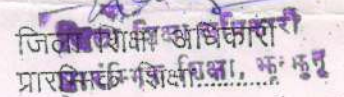 जिला शिक्षा अधिकारी
प्रारम्भिक शिक्षा, झुन्झुनू